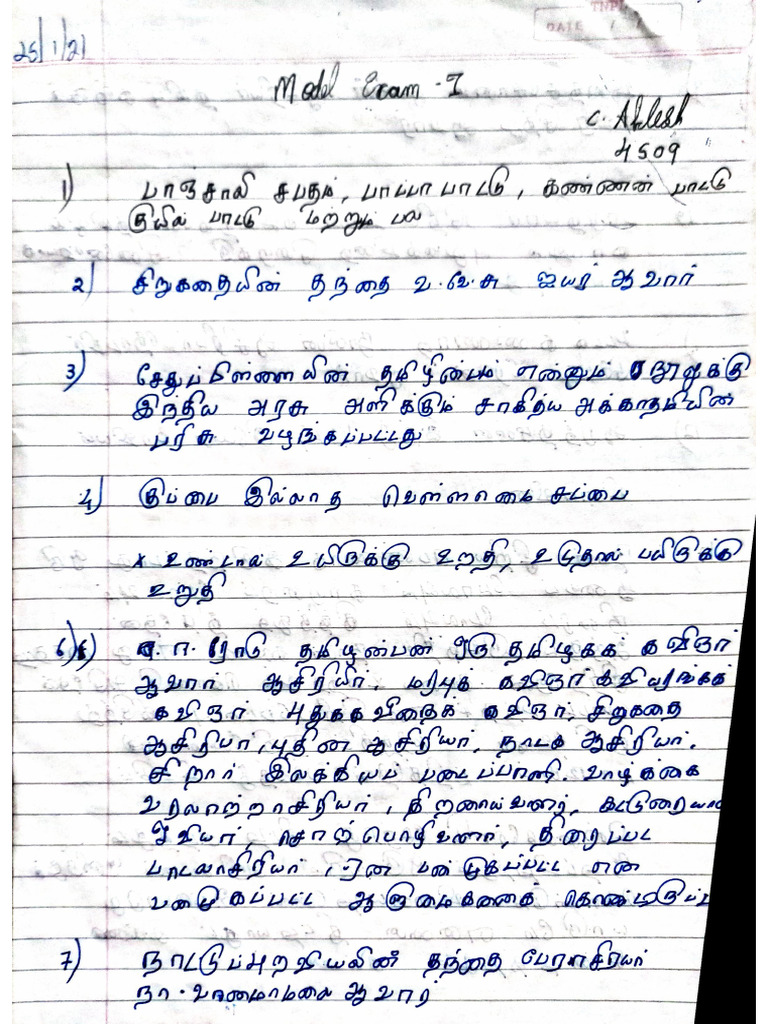 TNPL
DATE / /
25/1/21
Model Exam - I
C. Ahlesh
4509
1) பாஞ்சாலி சபதம், பாப்பா பாட்டு, கண்ணன் பாட்டு
குயில் பாட்டு மற்றும் பல
2) சிறுகதையின் தந்தை வ.வே.சு ஐயர் ஆவார்
3) சேதுப்பிள்ளையின் தமிழின்பம் என்னும் நூலுக்கு
இந்திய அரசு அளிக்கும் சாகித்ய அக்காதமியின்
பரிசு வழங்கப்பட்டது
4) குப்பை இல்லாத வெள்ளாமை சப்பை
x உண்டால் உயிருக்கு உறதி, உழுதால் பயிருக்கு
உறுதி
6) ஈரோடு தமிழன்பன் ஒரு தமிழகக் கவிஞர்
ஆவார் ஆசிரியர். மரபுக் கவிஞர் கவியரங்கக்
கவிஞர் புதுக்கவிதைக் கவிஞர், சிறுகதை
ஆசிரியர், புதின ஆசிரியர், நாடக ஆசிரியர்.
சிறார் இலக்கியப் படைப்பாளி. வாழ்க்கை
வரலாற்றாசிரியர், திறனாய்வாளர், கட்டுரையா
ஓவியர், சொற்பொழிவாளர், திரைப்பட
பாடலாசிரியர், என பன்முகப்பட்ட என
பன்முகப்பட்ட ஆளுமைகளைக் கொண்டிருப்ப
7) நாட்டுப்புறவியலின் தந்தை பேராசிரியர்
நா. வானமாமலை ஆவார்